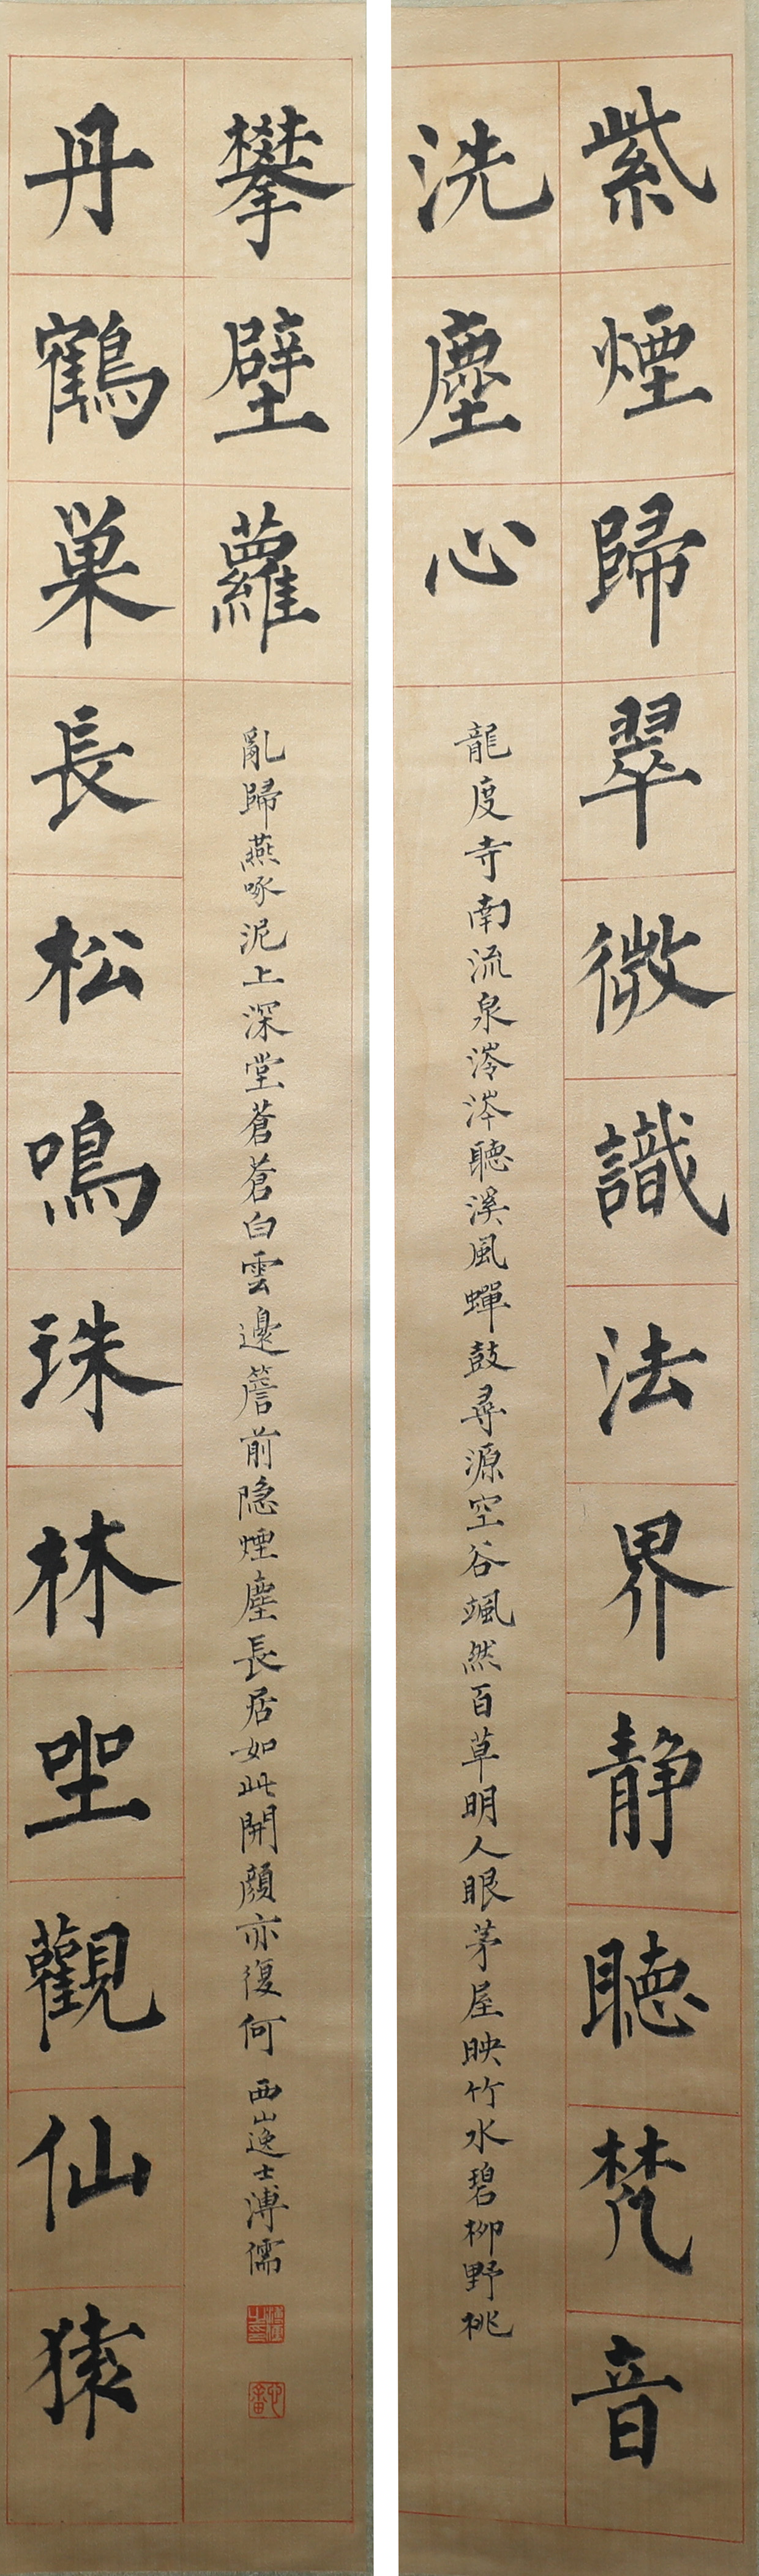 紫煙歸翠微識法界靜聽梵音
洗塵心
龍度寺南流泉涔聽溪風蟬鼓尋源空谷颯然百草明人眼茅屋映竹水碧柳野桃
丹鶴巢長松鳴珠林坐觀仙猿
攀壁蘿
亂歸燕啄泥上深堂蒼蒼白雲邊簷前隐煙塵長居如此開顏亦復何
西山逸士溥儒
溥儒之印
心畬